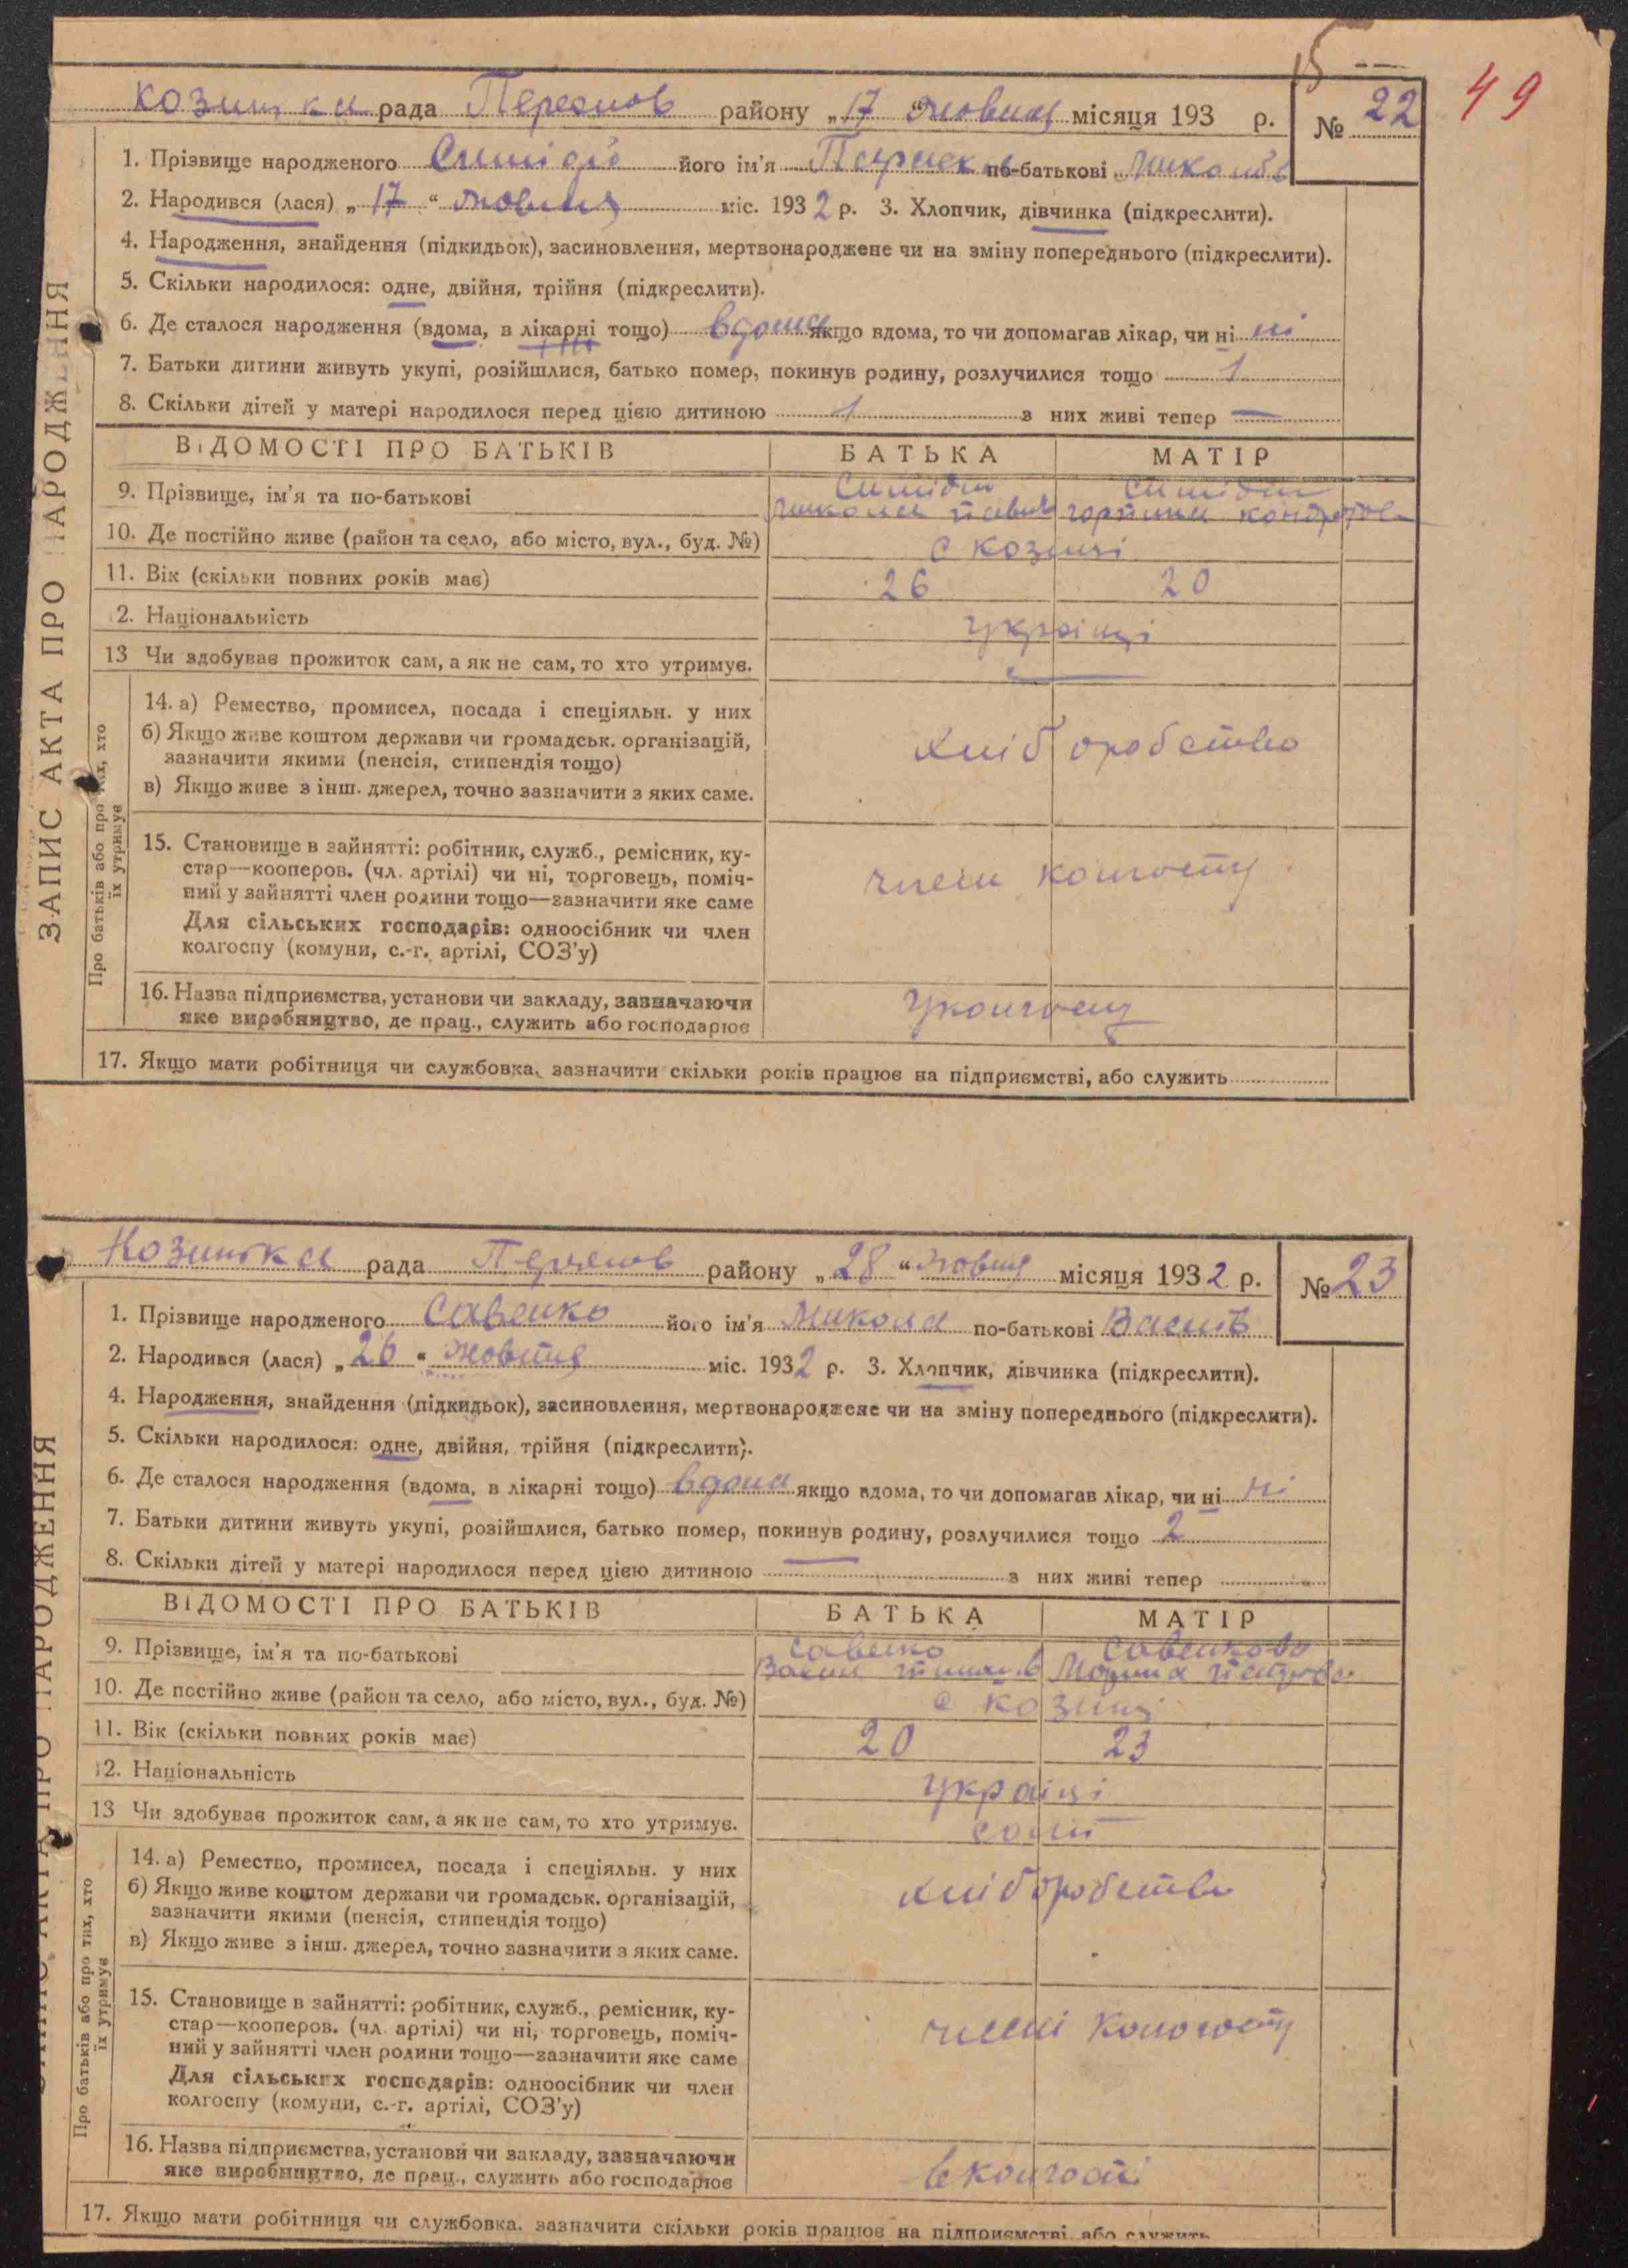 49
козицька рада Переяслов району „17“ жовтня місяця 193 р. № 22
1. Прізвище народженого його ім'я по-батькові Микол.
2. Народився (лася) „17“ жовтня міс. 1932 р. 3. Хлопчик, дівчинка (підкреслити).
4. Народження, знайдення (підкидьок), засиновлення, мертвонароджене чи на зміну попереднього (підкреслити).
5. Скільки народилося: одне, двійня, трійня (підкреслити).
6. Де сталося народження (вдома, в лікарні тощо) вдома якщо вдома, то чи допомагав лікар, чи ні ні
7. Батьки дитини живуть укупі, розійшлися, батько помер, покинув родину, розлучилися тощо 1
8. Скільки дітей у матері народилося перед цією дитиною 1 з них живі тепер —
ВІДОМОСТІ ПРО БАТЬКІВ БАТЬКА МАТІР
9. Прізвище, ім'я та по-батькові
микола павлов горпина кондратов
10. Де постійно живе (район та село, або місто, вул., буд. №) с козинці
11. Вік (скільки повних років має) 26 20
12. Національність українці
13 Чи здобуває прожиток сам, а як не сам, то хто утримує. —
14. а) Ремество, промисел, посада і спеціяльн. у них
б) Якщо живе коштом держави чи громадськ. організацій,
зазначити якими (пенсія, стипендія тощо)
хліборобство
в) Якщо живе з інш. джерел, точно зазначити з яких саме.
15. Становище в зайнятті: робітник, служб., ремісник, ку-
стар—кооперов. (чл. артілі) чи ні, торговець, поміч-
ний у зайнятті член родини тощо—зазначити яке саме
члени колгоспу
Для сільських господарів: одноосібник чи член
колгоспу (комуни, с.-г. артілі, СОЗ'у)
16. Назва підприємства, установи чи закладу, зазначаючи
яке виробництво, де прац., служить або господарює
у колгоспі
17. Якщо мати робітниця чи службовка, зазначити скільки років працює на підприємстві, або служить
ЗАПИС АКТА ПРО НАРОДЖЕННЯ
Про батьків або про тих, хто
їх утримує
Козинська рада Переяслов району „28“ жовтня місяця 1932 р. № 23
1. Прізвище народженого Савенко його ім'я Микола по-батькові Васильв
2. Народився (лася) „26“ жовтня міс. 1932 р. 3. Хлопчик, дівчинка (підкреслити).
4. Народження, знайдення (підкидьок), засиновлення, мертвонароджене чи на зміну попереднього (підкреслити).
5. Скільки народилося: одне, двійня, трійня (підкреслити).
6. Де сталося народження (вдома, в лікарні тощо) вдома якщо вдома, то чи допомагав лікар, чи ні ні
7. Батьки дитини живуть укупі, розійшлися, батько помер, покинув родину, розлучилися тощо 2
8. Скільки дітей у матері народилося перед цією дитиною — з них живі тепер
ВІДОМОСТІ ПРО БАТЬКІВ БАТЬКА МАТІР
9. Прізвище, ім'я та по-батькові савенко савенкова
10. Де постійно живе (район та село, або місто, вул., буд. №) с козинці
11. Вік (скільки повних років має) 20 23
12. Національність українці
13 Чи здобуває прожиток сам, а як не сам, то хто утримує. самі
14. а) Ремество, промисел, посада і спеціяльн. у них
б) Якщо живе коштом держави чи громадськ. організацій,
зазначити якими (пенсія, стипендія тощо)
хліборобство
в) Якщо живе з інш. джерел, точно зазначити з яких саме.
15. Становище в зайнятті: робітник, служб., ремісник, ку-
стар—кооперов. (чл. артілі) чи ні, торговець, поміч-
ний у зайнятті член родини тощо—зазначити яке саме
члени колгоспу
Для сільських господарів: одноосібник чи член
колгоспу (комуни, с.-г. артілі, СОЗ'у)
16. Назва підприємства, установи чи закладу, зазначаючи
яке виробництво, де прац., служить або господарює
в колгоспі
17. Якщо мати робітниця чи службовка, зазначити скільки років працює на підприємстві, або служить
ЗАПИС АКТА ПРО НАРОДЖЕННЯ
Про батьків або про тих, хто
їх утримує